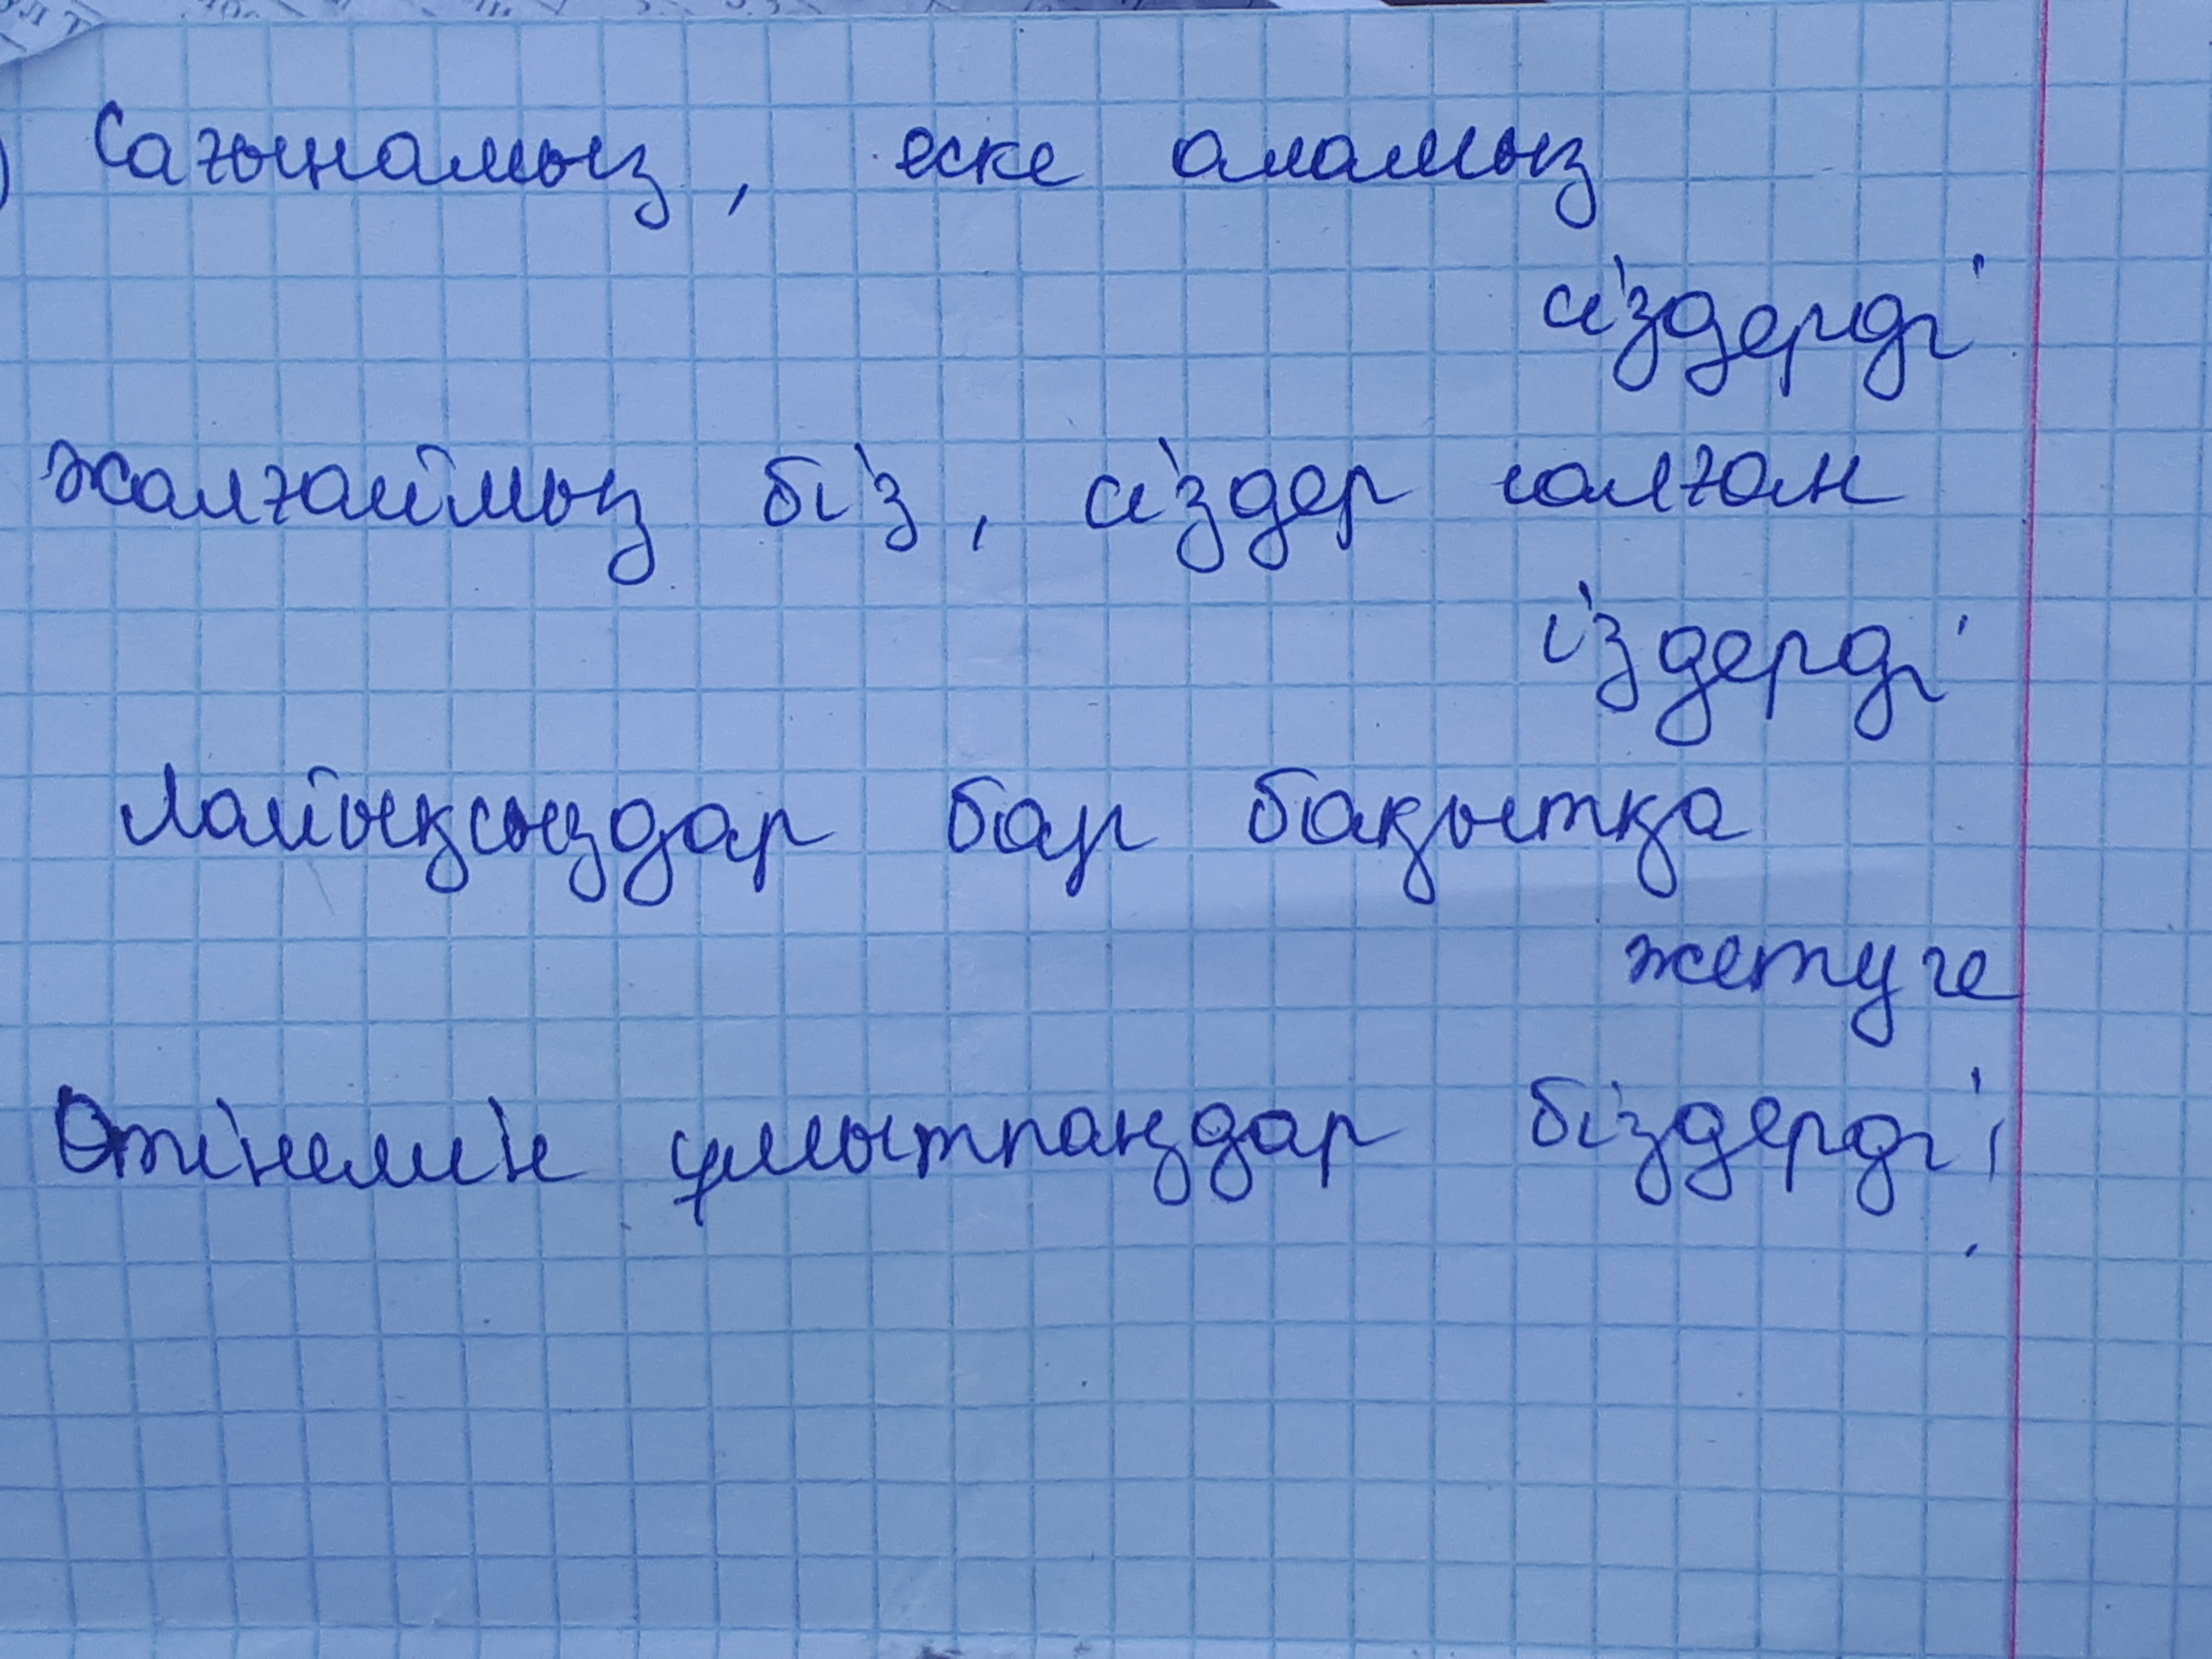 Сағынамыз, еске аламыз
сіздерді
Жалғаймыз біз, сіздер салған
іздерді
Лайықсыздар бар бақытқа
жетуге
Өтінемін ұмытпаңдар біздерді!